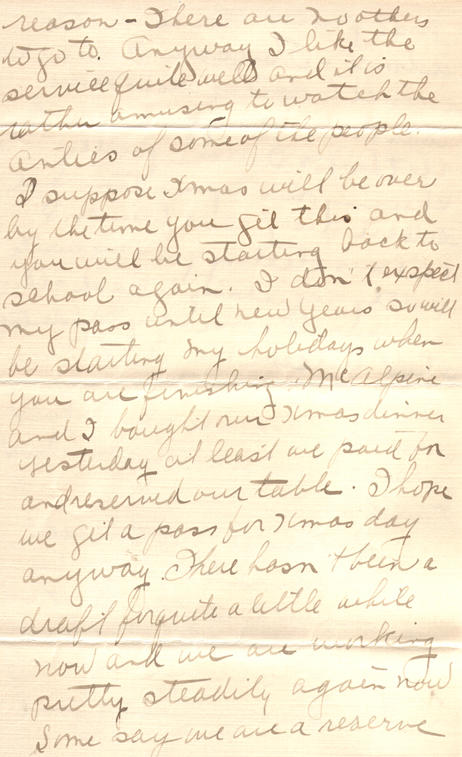 reason - There are no others
to go to. Anyway I like the
service quite well and it is
rather amusing to watch the
antics of some of the people.
I suppose Xmas will be over
by the time you get this and
you will be starting back to
school again. I don't expect
my pass until new years so will
be starting my holidays when
you are finishing. McAlpine
and I bought our Xmas dinner
yesterday at least we paid for
and reserved our table. I hope
we get a pass for Xmas day
anyway. There hasn't been a
draft for quite a little while
now and we are working
pretty steadily again now
Some say we are a reserve